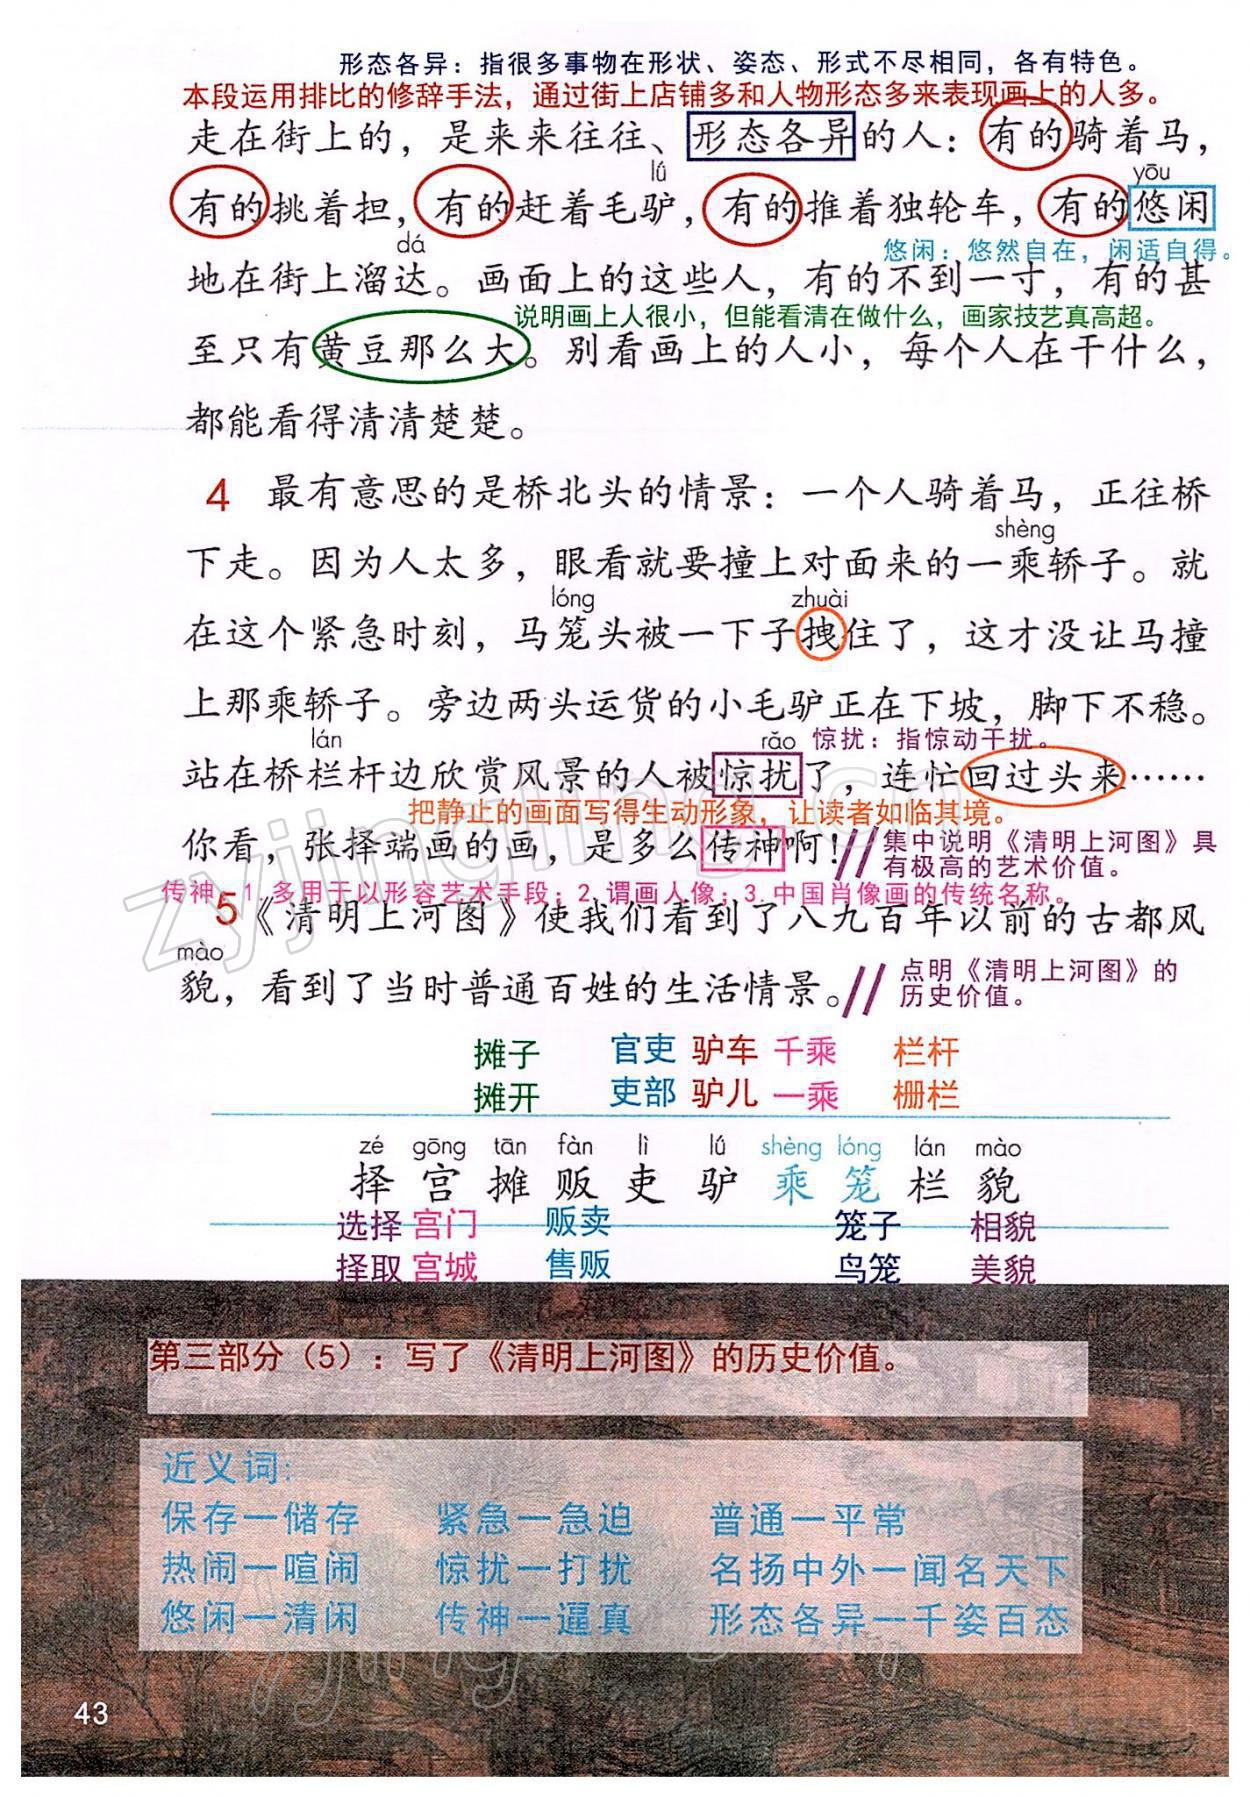 形态各异：指很多事物在形状、姿态、形式不尽相同，各有特色。
本段运用排比的修辞手法，通过街上店铺多和人物形态多来表现画上的人多。
走在街上的，是来来往往、形态各异的人：有的骑着马，
lǘ yōu
有的挑着担，有的赶着毛驴，有的推着独轮车，有的悠闲
dá
悠闲：悠然自在，闲适自得。
地在街上溜达。画面上的这些人，有的不到一寸，有的甚
说明画上人很小，但能看清在做什么，画家技艺真高超。
至只有黄豆那么大。别看画上的人小，每个人在干什么，
都能看得清清楚楚。
4 最有意思的是桥北头的情景：一个人骑着马，正往桥
shèng
下走。因为人太多，眼看就要撞上对面来的一乘轿子。就
lóng zhuài
在这个紧急时刻，马笼头被一下子拽住了，这才没让马撞
上那乘轿子。旁边两头运货的小毛驴正在下坡，脚下不稳。
lán rǎo 惊扰：指惊动干扰。
站在桥栏杆边欣赏风景的人被惊扰了，连忙回过头来……
把静止的画面写得生动形象，让读者如临其境。
你看，张择端画的画，是多么传神啊！
集中说明《清明上河图》具
有极高的艺术价值。
传神：1.多用于以形容艺术手段；2.谓画人像；3.中国肖像画的传统名称。
5 《清明上河图》使我们看到了八九百年以前的古都风
mào
貌，看到了当时普通百姓的生活情景。
点明《清明上河图》的
历史价值。
摊子 官吏 驴车 千乘 栏杆
摊开 吏部 驴儿 一乘 栅栏
zé gōng tān fàn lì lǘ shèng lóng lán mào
择 宫 摊 贩 吏 驴 乘 笼 栏 貌
选择 宫门 贩卖 笼子 相貌
择取 宫城 售贩 鸟笼 美貌
第三部分（5）：写了《清明上河图》的历史价值。
近义词:
保存—储存 紧急—急迫 普通—平常
热闹—喧闹 惊扰—打扰 名扬中外—闻名天下
悠闲—清闲 传神—逼真 形态各异—千姿百态
43
zyjingling.cn